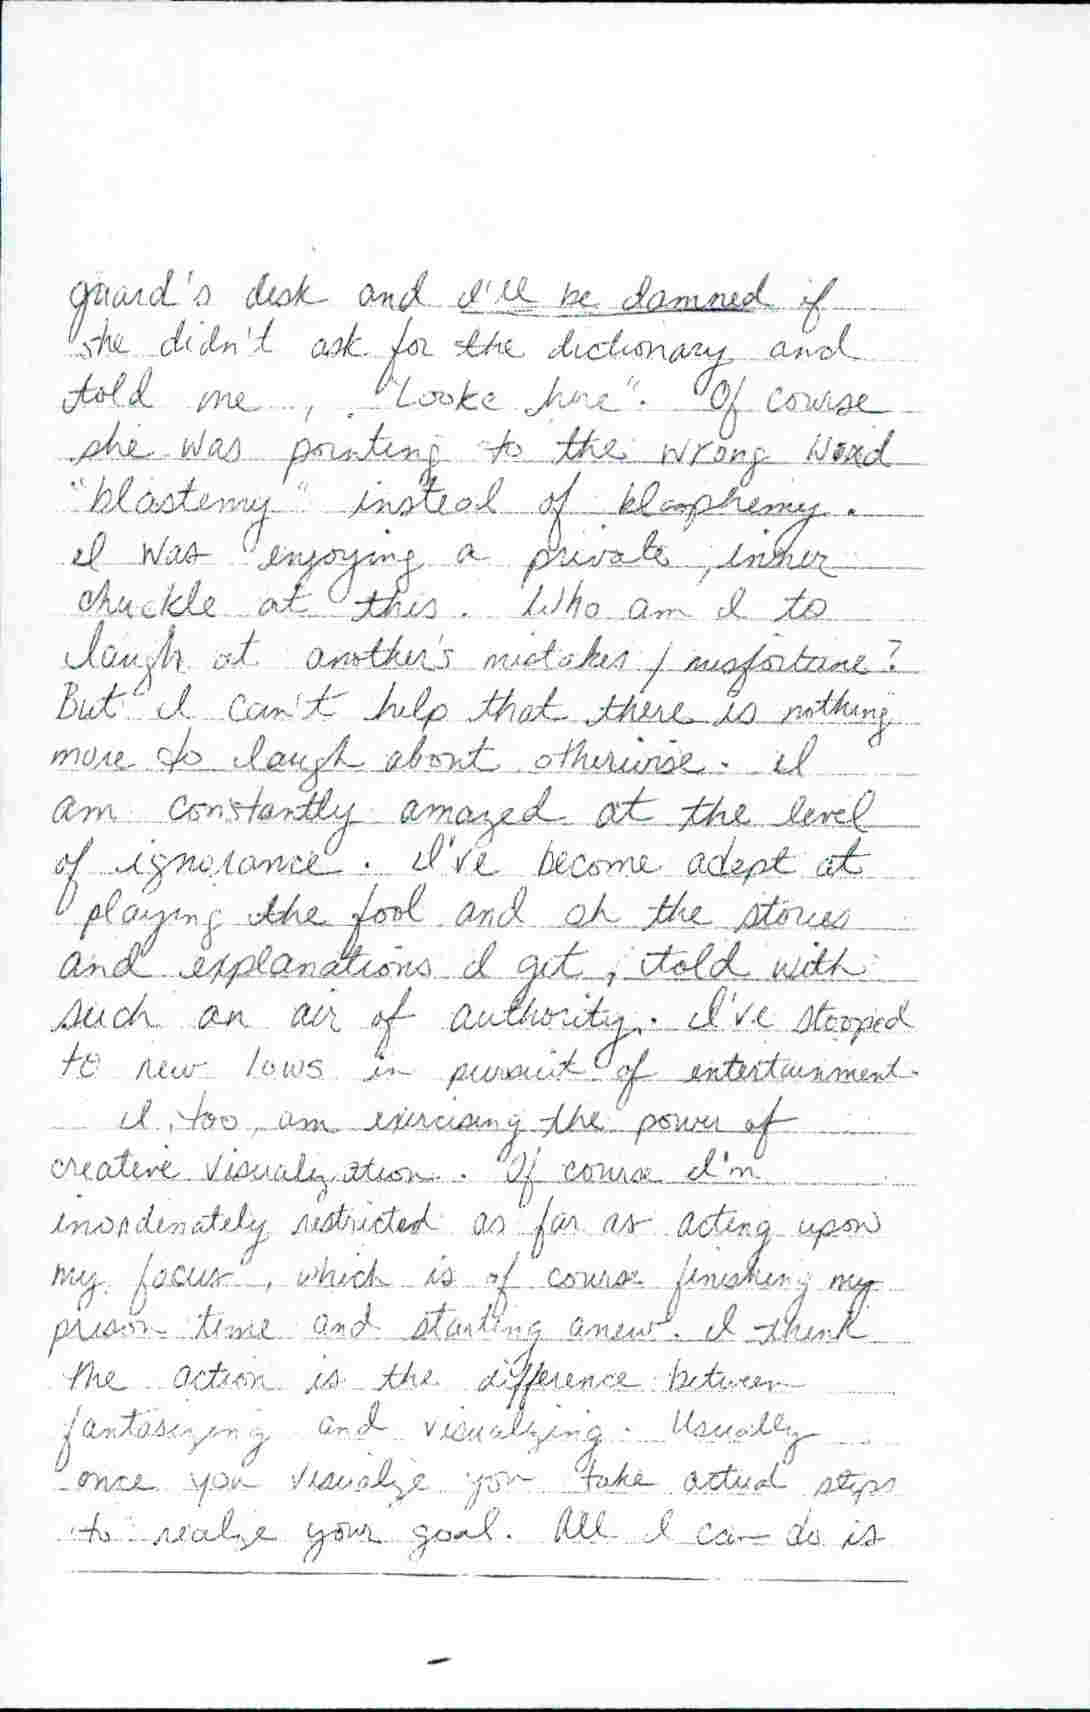 guard's desk and I'll be damned if
she didn't ask for the dictionary and
told me, "Looke here". Of course
she was pointing to the wrong word
"blastemy" instead of blasphemy.
I was enjoying a private, inner
chuckle at this. Who am I to
laugh at another's mistakes / misfortune?
But I can't help that there is nothing
more to laugh about otherwise. I
am constantly amazed at the level
of ignorance. I've become adept at
playing the fool and oh the stories
and explanations I get, told with
such an air of authority. I've stooped
to new lows in pursuit of entertainment.
I, too, am exercising the power of
creative visualization. Of course I'm
inordenately restricted as far as acting upon
my focus, which is of course finishing my
prison time and starting anew. I think
the action is the difference between
fantasizing and visualizing. Usually
once you visualize you take actual steps
to realize your goal. All I can do is